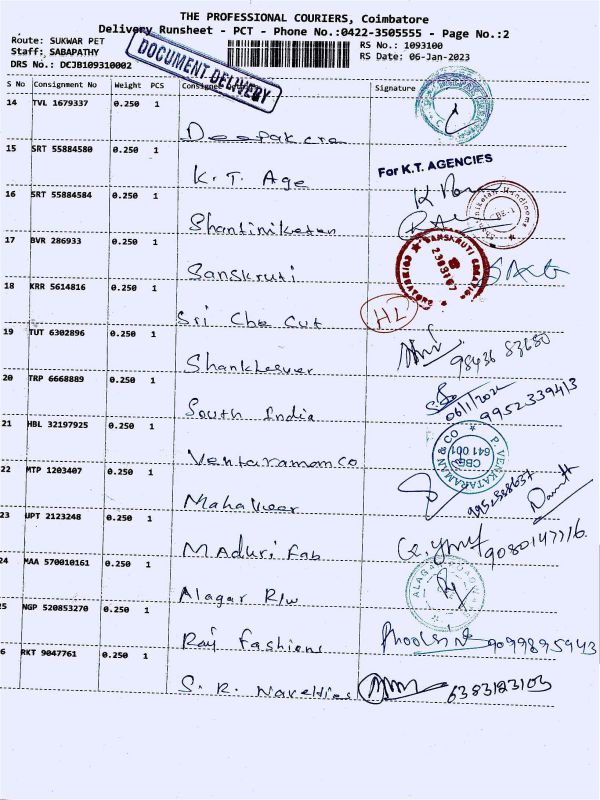 THE PROFESSIONAL COURIERS, Coimbatore
Delivery Runsheet - PCT - Phone No.:0422-3505555 - Page No.:2
Route: SUKWAR PET
RS No.: 1093100
Staff: SABAPATHY
RS Date: 06-Jan-2023
DRS No.: DCJB109310002
DOCUMENT DELIVERY
S No Consignment No Weight PCS Consignee Signature
14 TVL 1679337 0.250 1
Deepak
15 SRT 55884580 0.250 1
For K.T. AGENCIES
K. T. Age
16 SRT 55884584 0.250 1
Shantiniketan
17 BVR 286933 0.250 1
SANSKRUTI
Sanskruti
18 KRR 5614816 0.250 1
HL
Sri Cut
19 TUT 6302896 0.250 1
Shankheswer
98436 83680
20 TRP 6668889 0.250 1
06/1/2022
9952339413
South India
21 HBL 32197925 0.250 1
P. VENKATARAMAN & CO
CBE
641 001
Ventaraman Co
22 MTP 1203407 0.250 1
Mahaveer
23 UPT 2123248 0.250 1
9080147716.
MAduri Fab
24 MAA 570010161 0.250 1
ALAGAR
Alagar R/w
25 NGP 520853270 0.250 1
Raj Fashions
9099895943
26 RKT 9047761 0.250 1
S. R. Novelties
6383123103